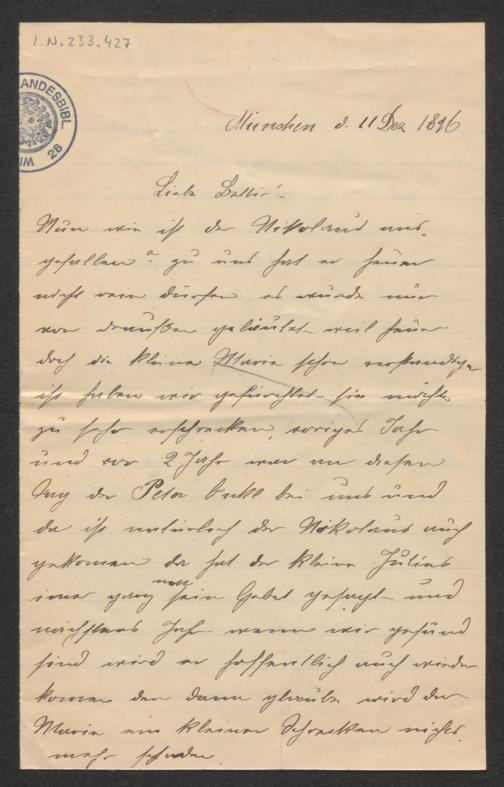 I.N. 233.427
LANDESBIBL
WI
28
München d. 11 Dez 1896
Liebe Betti!
Nun wie ist der Nikolaus aus-
gefallen? zu uns hat er heuer
nicht rein dürfen es wurde nur
von draußen geläutet weil heuer
doch die kleine Marie schon verständig
ist haben wir gefürchtet sie möchte
zu sehr erschrecken, voriges Jahr
und vor 2 Jahr war an diesen
Tag der Peter bei uns und
da ist natürlich der Nikolaus auch
gekomen da hat der kleine Julius
imer ganz nett sein Gebet gesagt und
nächstens Jahr wenn wir gesund
sind wird er hoffentlich auch wieder
komen den dann glaube wird der
Marie ein kleiner Schrecken nichts
mehr schaden.